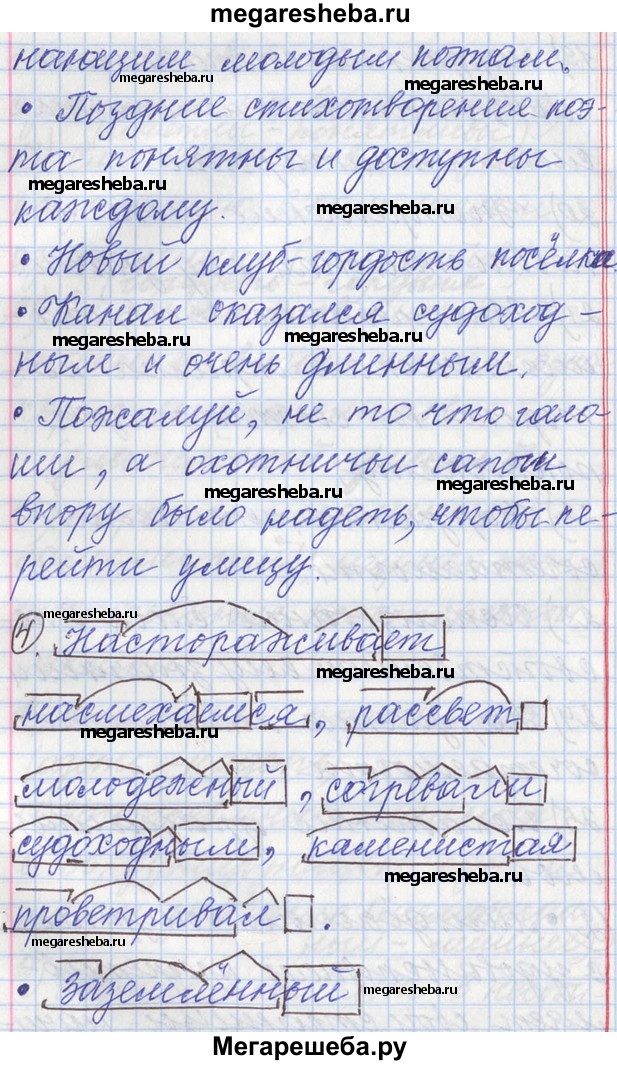 megaresheba.ru
нающим молодым поэтам.
megaresheba.ru megaresheba.ru
• Поздние стихотворения поэ-
та понятны и доступны
megaresheba.ru
каждому. megaresheba.ru
• Новый клуб-гордость посёлка.
• Канал оказался судоход-
megaresheba.ru megaresheba.ru
ным и очень длинным.
• Пожалуй, не то что гало-
ши, а охотничьи сапоги
megaresheba.ru megaresheba.ru
впору было надеть, чтобы пе-
рейти улицу.
megaresheba.ru
4. Настораживает
megaresheba.ru
насмехаемся, рассвет
megaresheba.ru
молодежный, согревали
судоходным, каменистая
megaresheba.ru
проветривал.
megaresheba.ru
• Заземлённый megaresheba.ru
Мегарешеба.ру